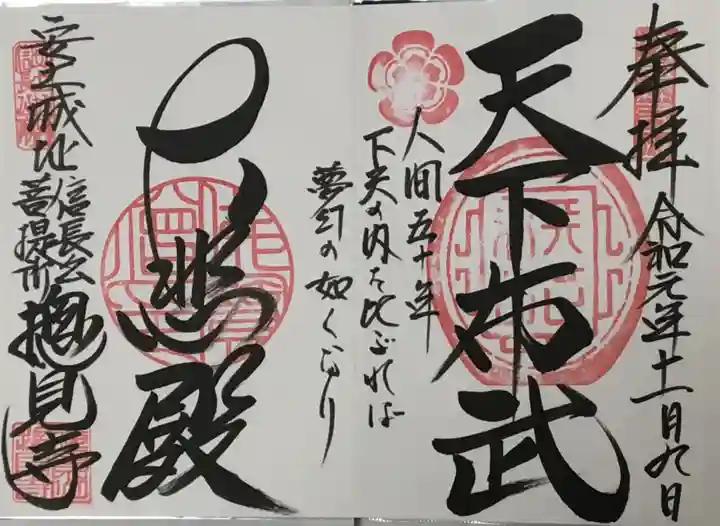 奉拝
令和元年十一月九日
天下布武
人間五十年
下天の内を比ぶれば
夢幻の如くなり
大悲殿
安土城址
信長公
菩提所
摠見寺